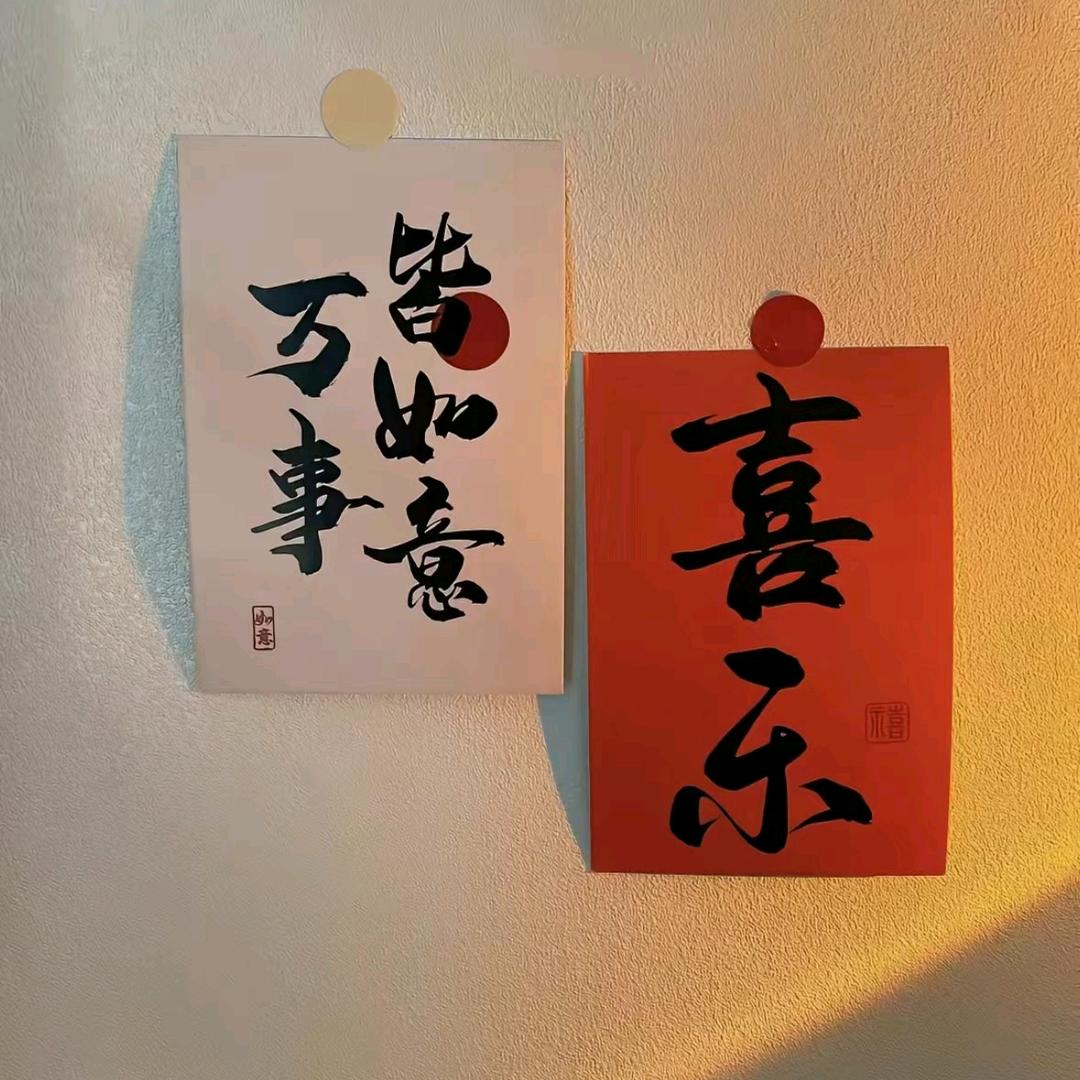 万事
皆如意
如意
喜乐
喜乐